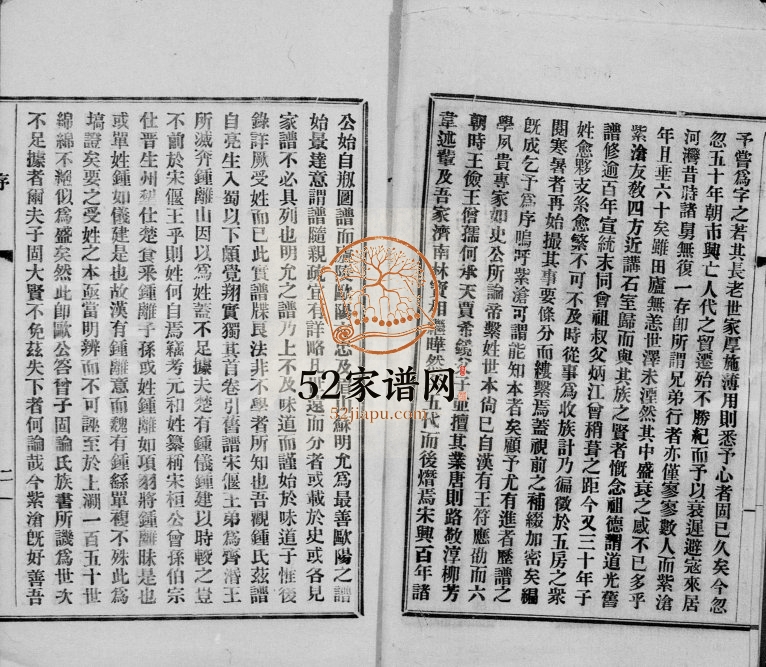 予嘗爲字之若其長老世家厚施溥用則悉予心者固已久矣今忽
忽五十年朝市興亡人代之貿遷殆不勝紀而予以衰遲避寇來居
河灣昔時諸舅無復一存卽所謂兄弟行者亦僅寥寥數人而紫滄
年且垂六十矣雖田廬無恙世澤未湮然其中盛衰之感不已多乎
紫滄友敎四方近講石室歸而與其族之賢者慨念祖德謂道光舊
譜修逾百年宣統末伺曾祖叔父炳江曾稍葺之距今又三十年子
姓愈夥支系愈繁不可不及時從事爲收族計乃徧徵於五房之衆
閱寒暑者再始撮其事要條分而縷繫焉蓋視前之補綴加密矣編
旣成乞予爲序嗚呼紫滄可謂能知本者矣顧予尤有進者歷譜之
學夙貴專家如史公所論帝繫姓世本尙已自漢有王符應劭而六
朝時王儉王僧孺何承天賈希鏡 並擅其業唐則路敬淳柳芳
韋述輩及吾家濟南林寶相繼曄然 五代而後熸焉宋興百年諸
公始自瓶圖譜而廬陵歐陽 忠及眉山蘇明允爲最善歐陽之譜
始景達意謂譜隨親疏宜有詳略凡 遠而分者或載於史或各見
家譜不必具列也明允之譜乃上不及味道而謹始於味道子惟後
錄詳厥受姓而已此實譜牒良法非不學者所知也吾觀鍾氏茲譜
自亮生入蜀以下頗覺翔實獨其首卷引舊譜宋偃王弟爲齊湣王
所滅奔鍾離山因以爲姓蓋不足據夫楚有鍾儀鍾建以時較之豈
不前於宋偃王乎則姓何自焉竊考元和姓纂稱宋桓公曾孫伯宗
仕晉生州犁仕楚食采鍾離子孫或姓鍾離如項羽將鍾離昧是也
或單姓鍾如儀建是也故漢有鍾離意而魏有鍾繇單複不殊此爲
塙證矣要之受姓之本亟當明辨而不可誣至於上溯一百五十世
綿綿不絕似爲盛矣然此卽歐公答曾子固論氏族書所譏爲世次
不足據者爾夫子固大賢不免茲失下者何論哉今紫滄旣好善吾
序
二
52家谱网
52jiapu.com